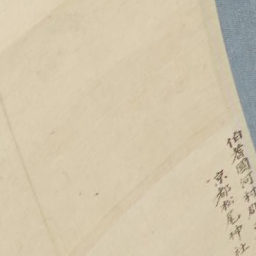 伯耆國河村郡
京都松尾神社